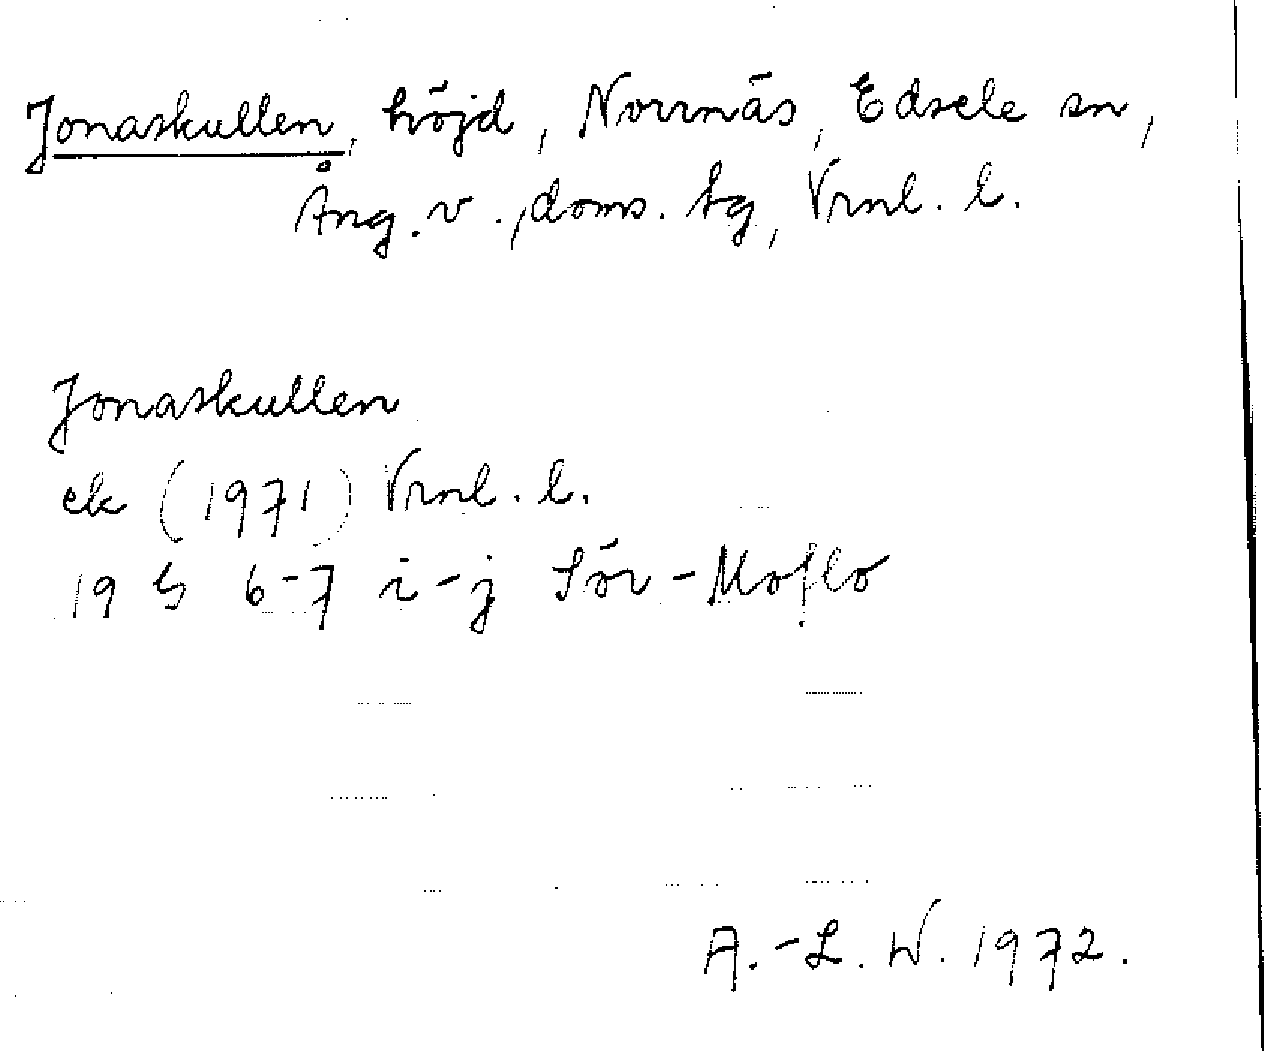 Jonaskullen, höjd, Norrnäs, Edsele sn,
Ång. v., doms. tg, Vrnl. l.
Jonaskullen
ek (1971) Vrnl. l.
19 G 6-7 i-j Sör-Moflo
A.-L. W. 1972.